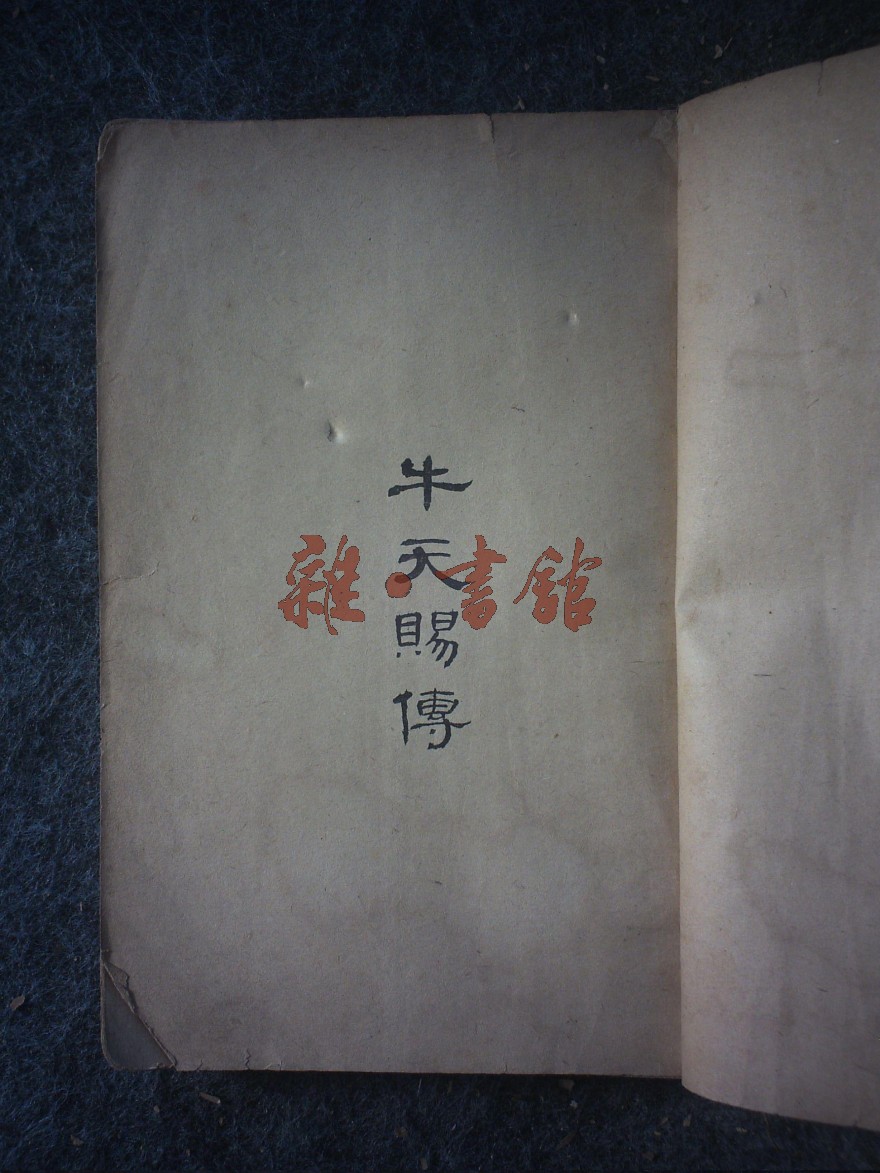 牛天賜傳
雜·書館